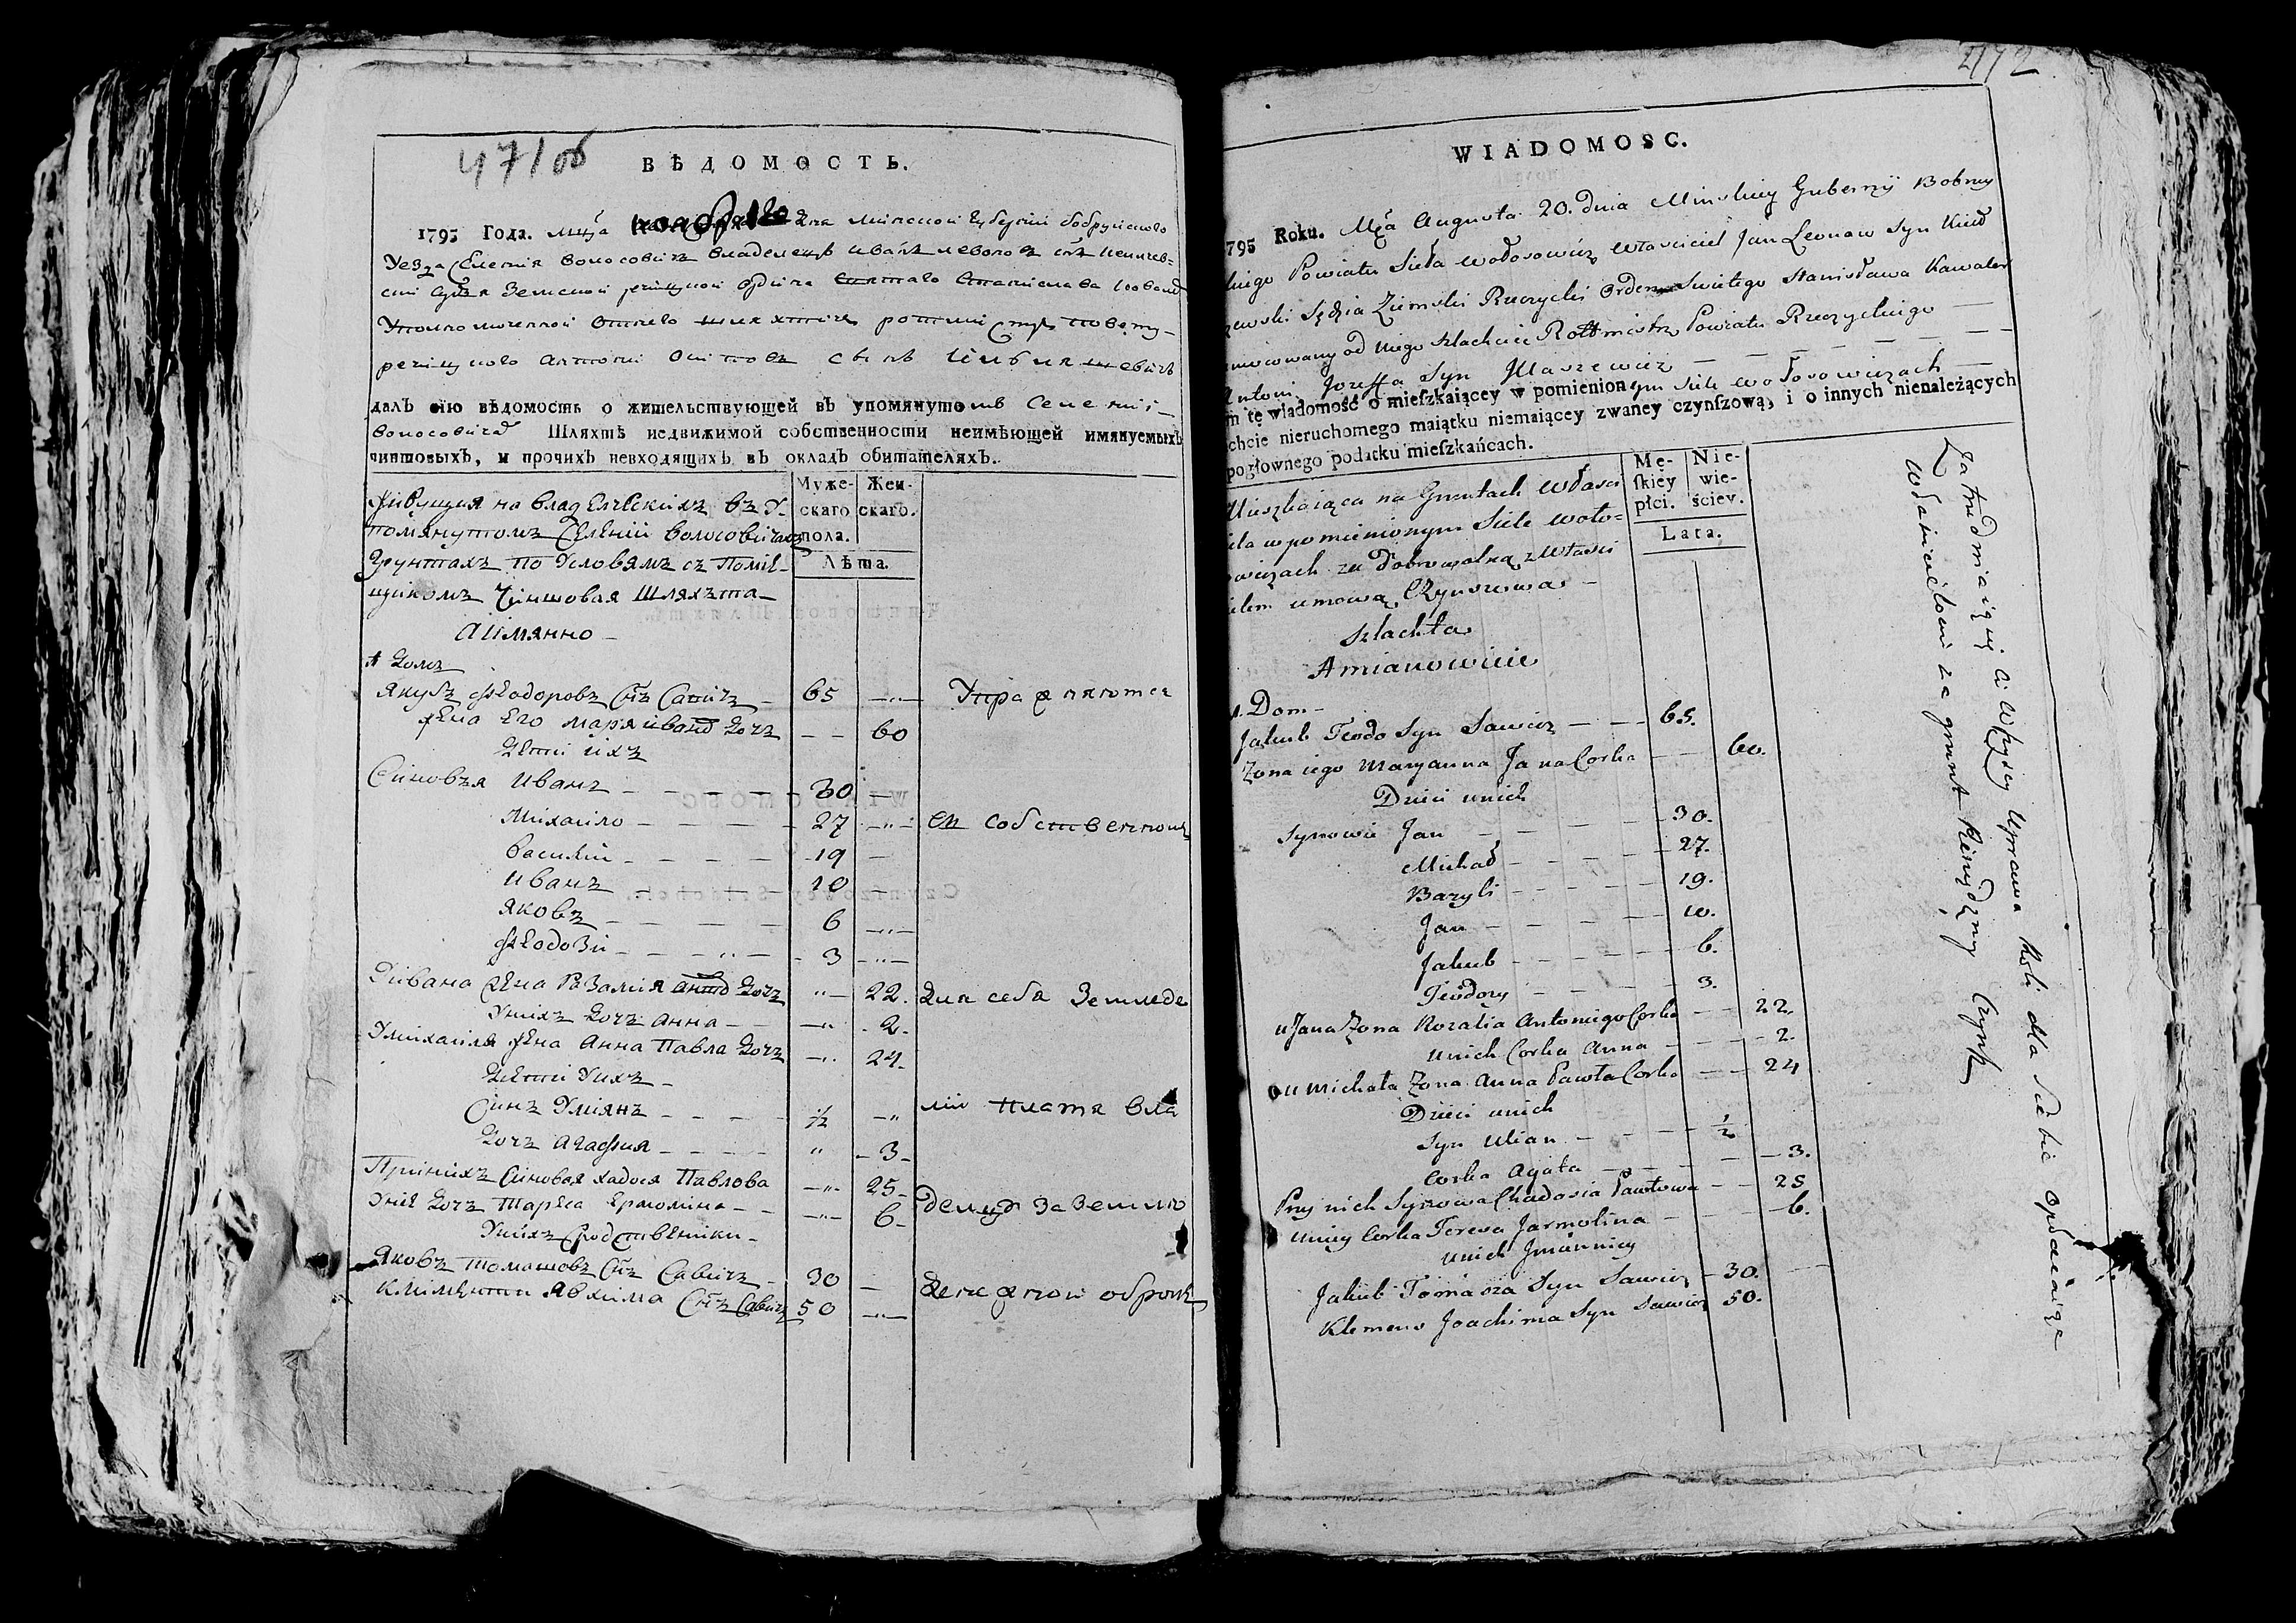 47/об
ВѢДОМОСТЬ.
1795 Года. мца ноября 12 дня минской губернїи бобруйского
уезда селенїя волосовичъ владелецъ иванъ леоновъ снъ
судья земской речицкой ордена святаго станислава
уполномоченной отнего шляхтичъ ротмистръ повету
речицкого антонї осиповъ сынъ
далъ сїю вѣдомость о жительствующей въ упомянутомъ селенїи
волосовичах Шляхтѣ недвижимой собственности неимѣющей имянуемыхъ
чиншовыхъ, и прочихъ невходящихъ въ окладъ обитателяхъ.
живущия на владелескихъ въ у-
помянутомъ селенїи волосовичахъ
грунтахъ по условямъ съ помѣ-
щикомъ чиншовая шляхта
аимянно
Муже-
скаго
пола.
Жен-
скаго.
Лѣта.
1 домъ
якубъ феодоровъ снъ савичъ 65 —
жена его маря иван дочъ — 60
дети ихъ
синовъя иванъ 30 —
михаило 27 —
василий 19 —
иванъ 10 —
яковъ 6 —
феодозй 3 —
уивана жена розалия анто дочъ — 22.
унихъ дочъ анна — 2.
умихаила жена анна павла дочъ — 24.
дети унихъ
синъ умиянъ 1/2 —
дочъ агафия — 3
принихъ синовая хадося павлова — 25
унїе дочъ тареса ермолина — 6
унихъ сродственики
яковъ томашовъ снъ савичъ 30 —
климентш явхима снъ савичъ 50 —
упражняются
въ собственном
для себя земледе
лїи платя вла
дельцу за землю
денежной оброкъ
472
WIADOMOSC.
795 Roku. Mca Augusta 20. dnia Minskiey Gubernij Bobruy
skiego Powiatu Sieła Wołosowicz własciciel Jan Leonow Syn Kieł
czewski Sędzia Ziemski Rzeczycki Orderu Swiętego Stanisława Kawaler
umocowany od niego Szlachcic Rottmistrz Powiatu Rzeczyckiego
Antoni Jozeffa Syn Jllaszewicz
m tę wiadomość o mieſzkaiącey w pomienionym siele wołosowiczach
chcie nieruchomego maiątku niemaiącey zwaney czynſzową, i o innych nienależących
pogłownego podatku mieſzkańcach.
Mieszkaiąca na Gruntach własci
ciela w pomienionym Siele woło=
sowiczach za dobrowolną z własci
cielem umową Czynszowa
szlachta
Amianowicie
Mę-
ſkiey
płci.
Nie-
wie-
ściey.
Lata.
1. Dom
Jakub Teodo Syn Sawicz 65.
Zona iego Maryanna Jana Corka 60.
Dzieci unich
Synowie Jan 30.
Michał 27.
Bazyli 19.
Jan 10.
Jakub 6.
Teodozy 3.
u Jana Zona Rozalia Antoniego Corka 22.
unich Corka Anna 2.
u Michała Zona Anna Pawła Corka 24
Dzieci unich
Syn Ulian 1/2
Corka Agata 3.
Przy nich Synowa Chadosia Pawłowa 25
uniey Corka Teresa Jarmolina 6.
unich Jmiennicy
Jakub Tomasza Syn Sawicz 30.
Klemens Joachima Syn Sawicz 50.
Zatrudniaią się ci wszyscy uprawą Roli dla Siebie opłacaiąc
Właścicielowi za grunt Pieniężny Czynsz